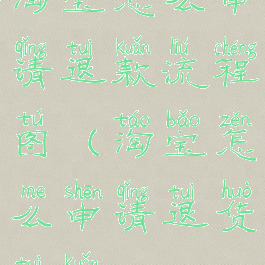 淘宝怎么申
qǐng tuì kuǎn liú chéng
请退款流程
tú táo bǎo zěn
图(淘宝怎
me shēn qǐng tuì huò
么申请退货